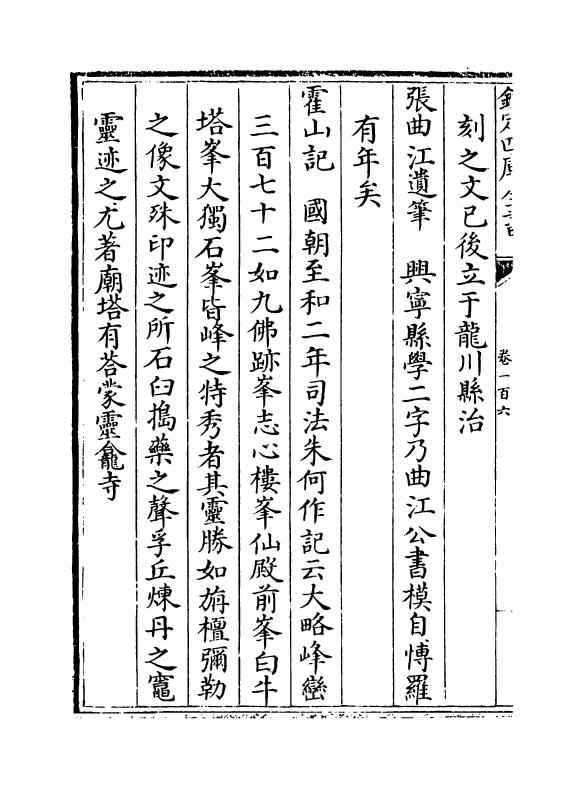 欽定四庫全書
卷一百六
刻之文已後立于龍川縣治
張曲江遺筆　興寧縣學二字乃曲江公書模自愽羅
有年矣
霍山記　國朝至和二年司法朱何作記云大略峰巒
三百七十二如九佛跡峯志心樓峯仙殿前峯白牛
塔峯大獨石峯皆峰之特秀者其靈勝如旃檀彌勒
之像文殊印迹之所石臼搗藥之聲孚丘煉丹之竈
靈迹之尤著廟塔有荅蒙靈龕寺